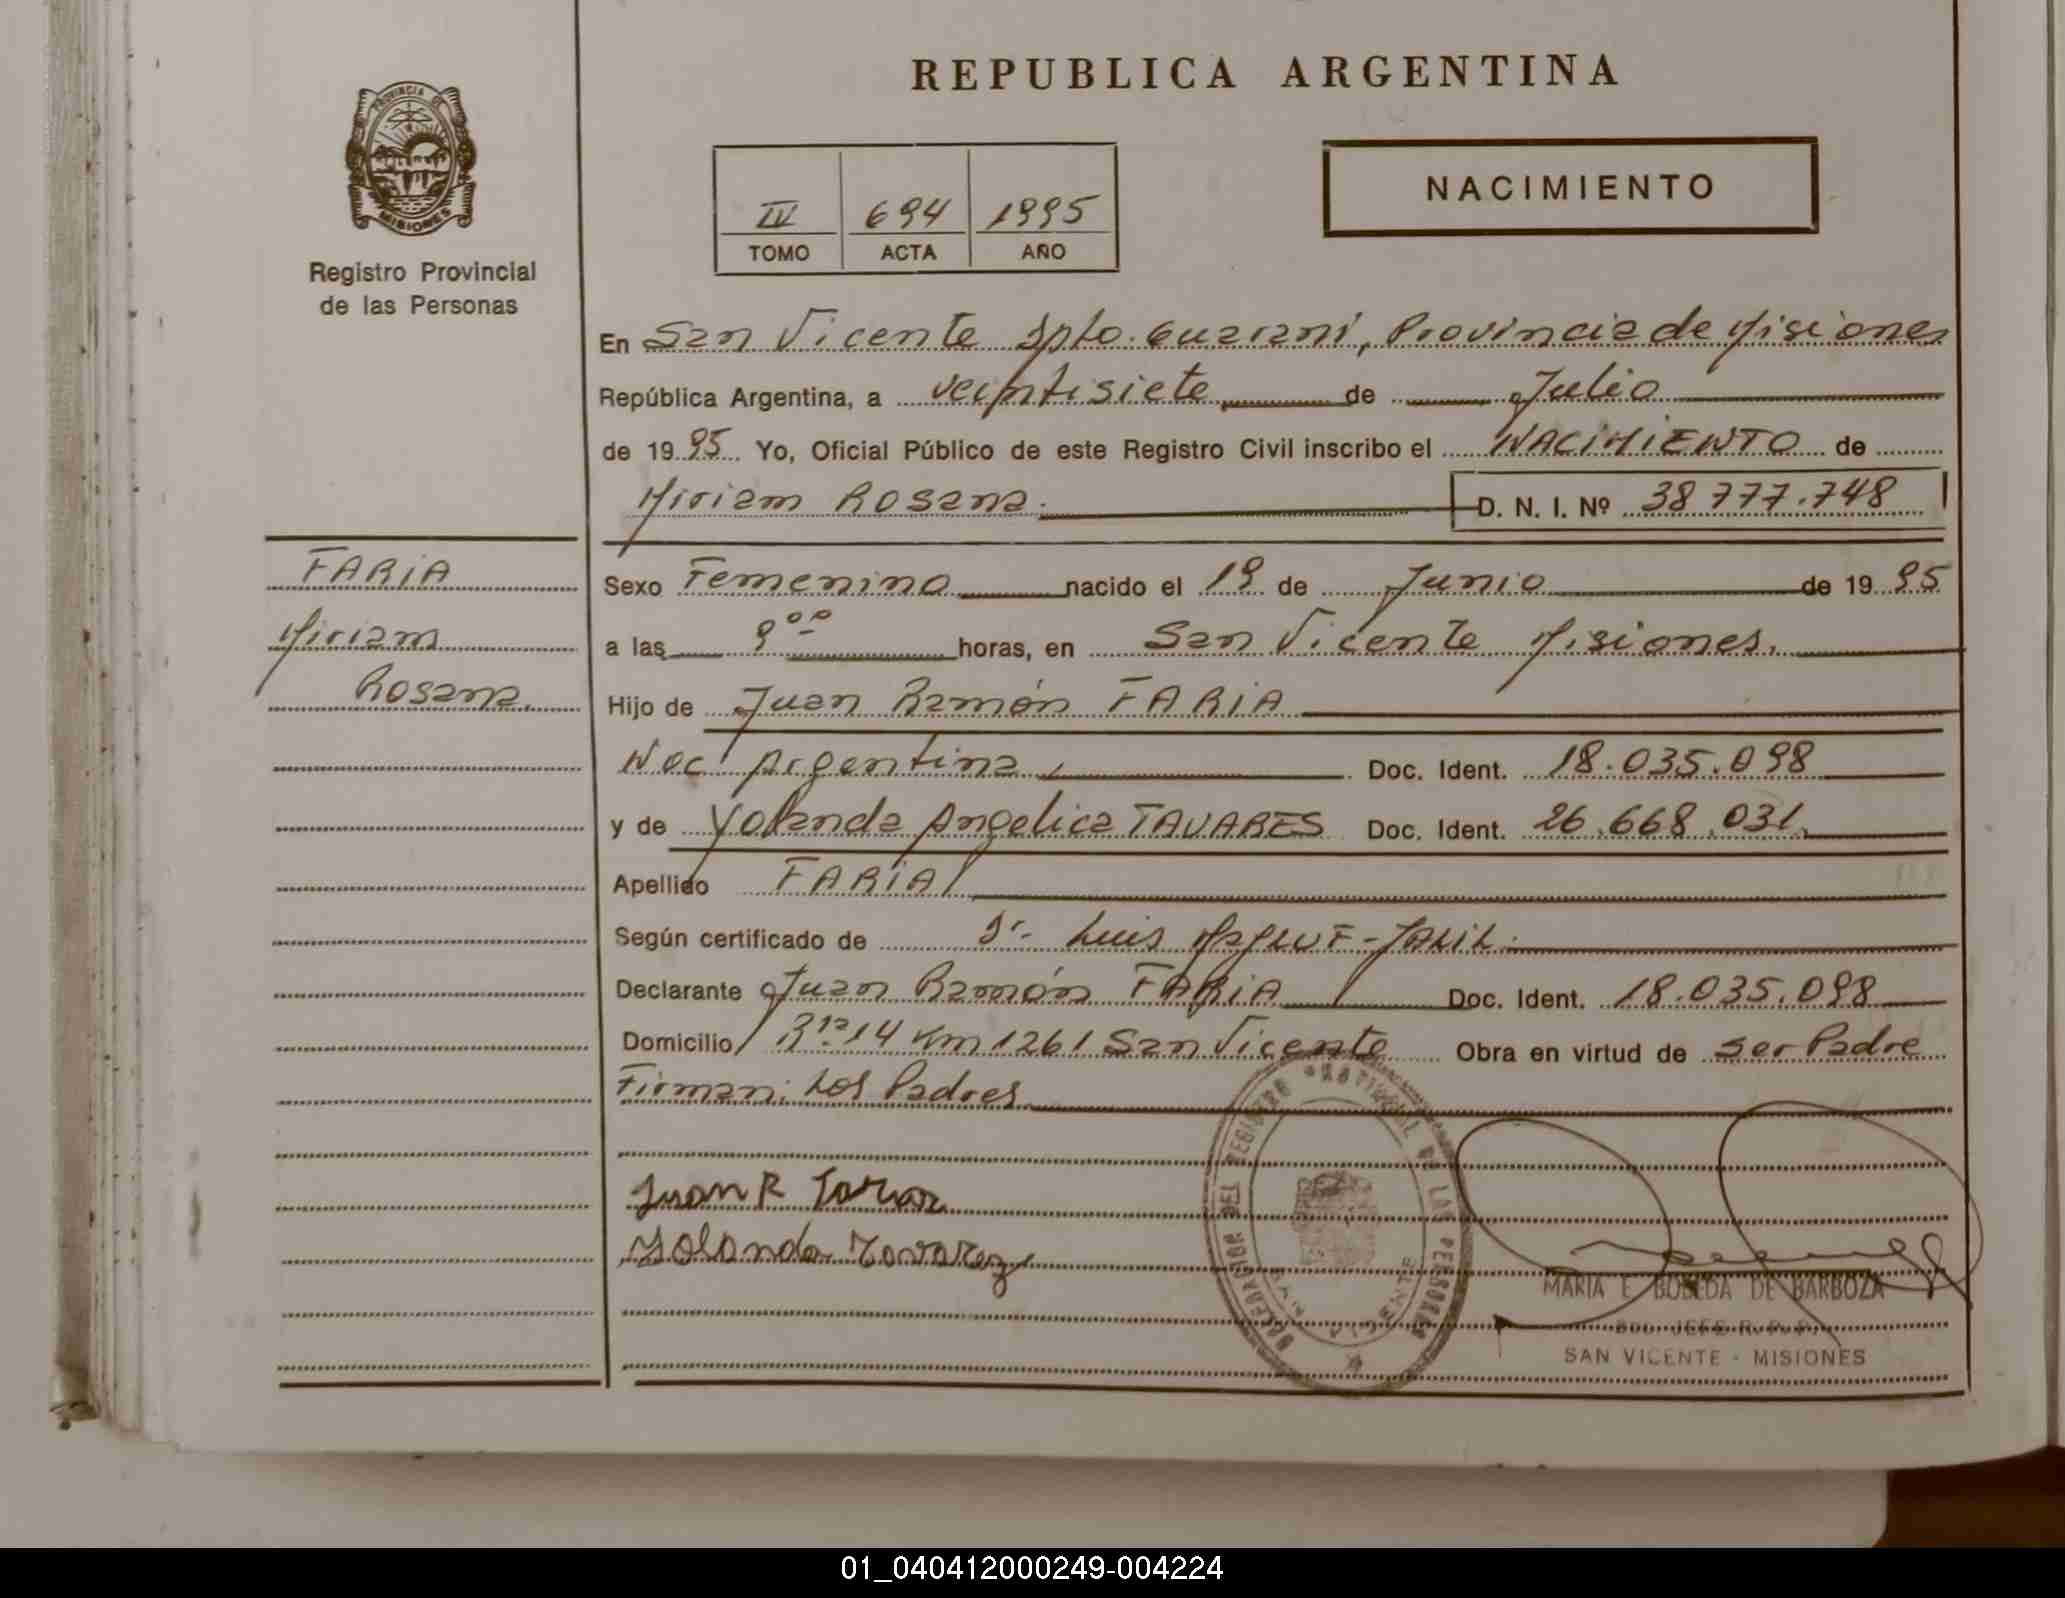 REPUBLICA ARGENTINA
PROVINCIA DE
MISIONES
Registro Provincial
de las Personas
IV 694 1995
TOMO ACTA AÑO
NACIMIENTO
En San Vicente Dpto. Guaraní, Provincia de Misiones
República Argentina, a veintisiete de Julio
de 1995 Yo, Oficial Público de este Registro Civil inscribo el NACIMIENTO de
Miriam Rosana. D. N. I. Nº 38777.748
FARIA
Miriam
Rosana.
Sexo Femenino nacido el 19 de Junio de 1995
a las 9 00 horas, en San Vicente Misiones.
Hijo de Juan Ramón FARIA
Nac. Argentina, Doc. Ident. 18.035.098
y de Yolanda Angelica TAVARES Doc. Ident. 26.668.031.
Apellido FARIA
Según certificado de Dr. Luis
Declarante Juan Ramón FARIA Doc. Ident. 18.035.098
Domicilio 14 Km 1261 San Vicente Obra en virtud de ser Padre
Firman: Los Padres
Juan R Farias
Yolanda Tavarez
DEL REGISTRO DE LAS PERSONAS
SAN VICENTE
MARIA E. BOBEDA DE BARBOZA
JEFE R. P. P.
SAN VICENTE - MISIONES
01_040412000249-004224